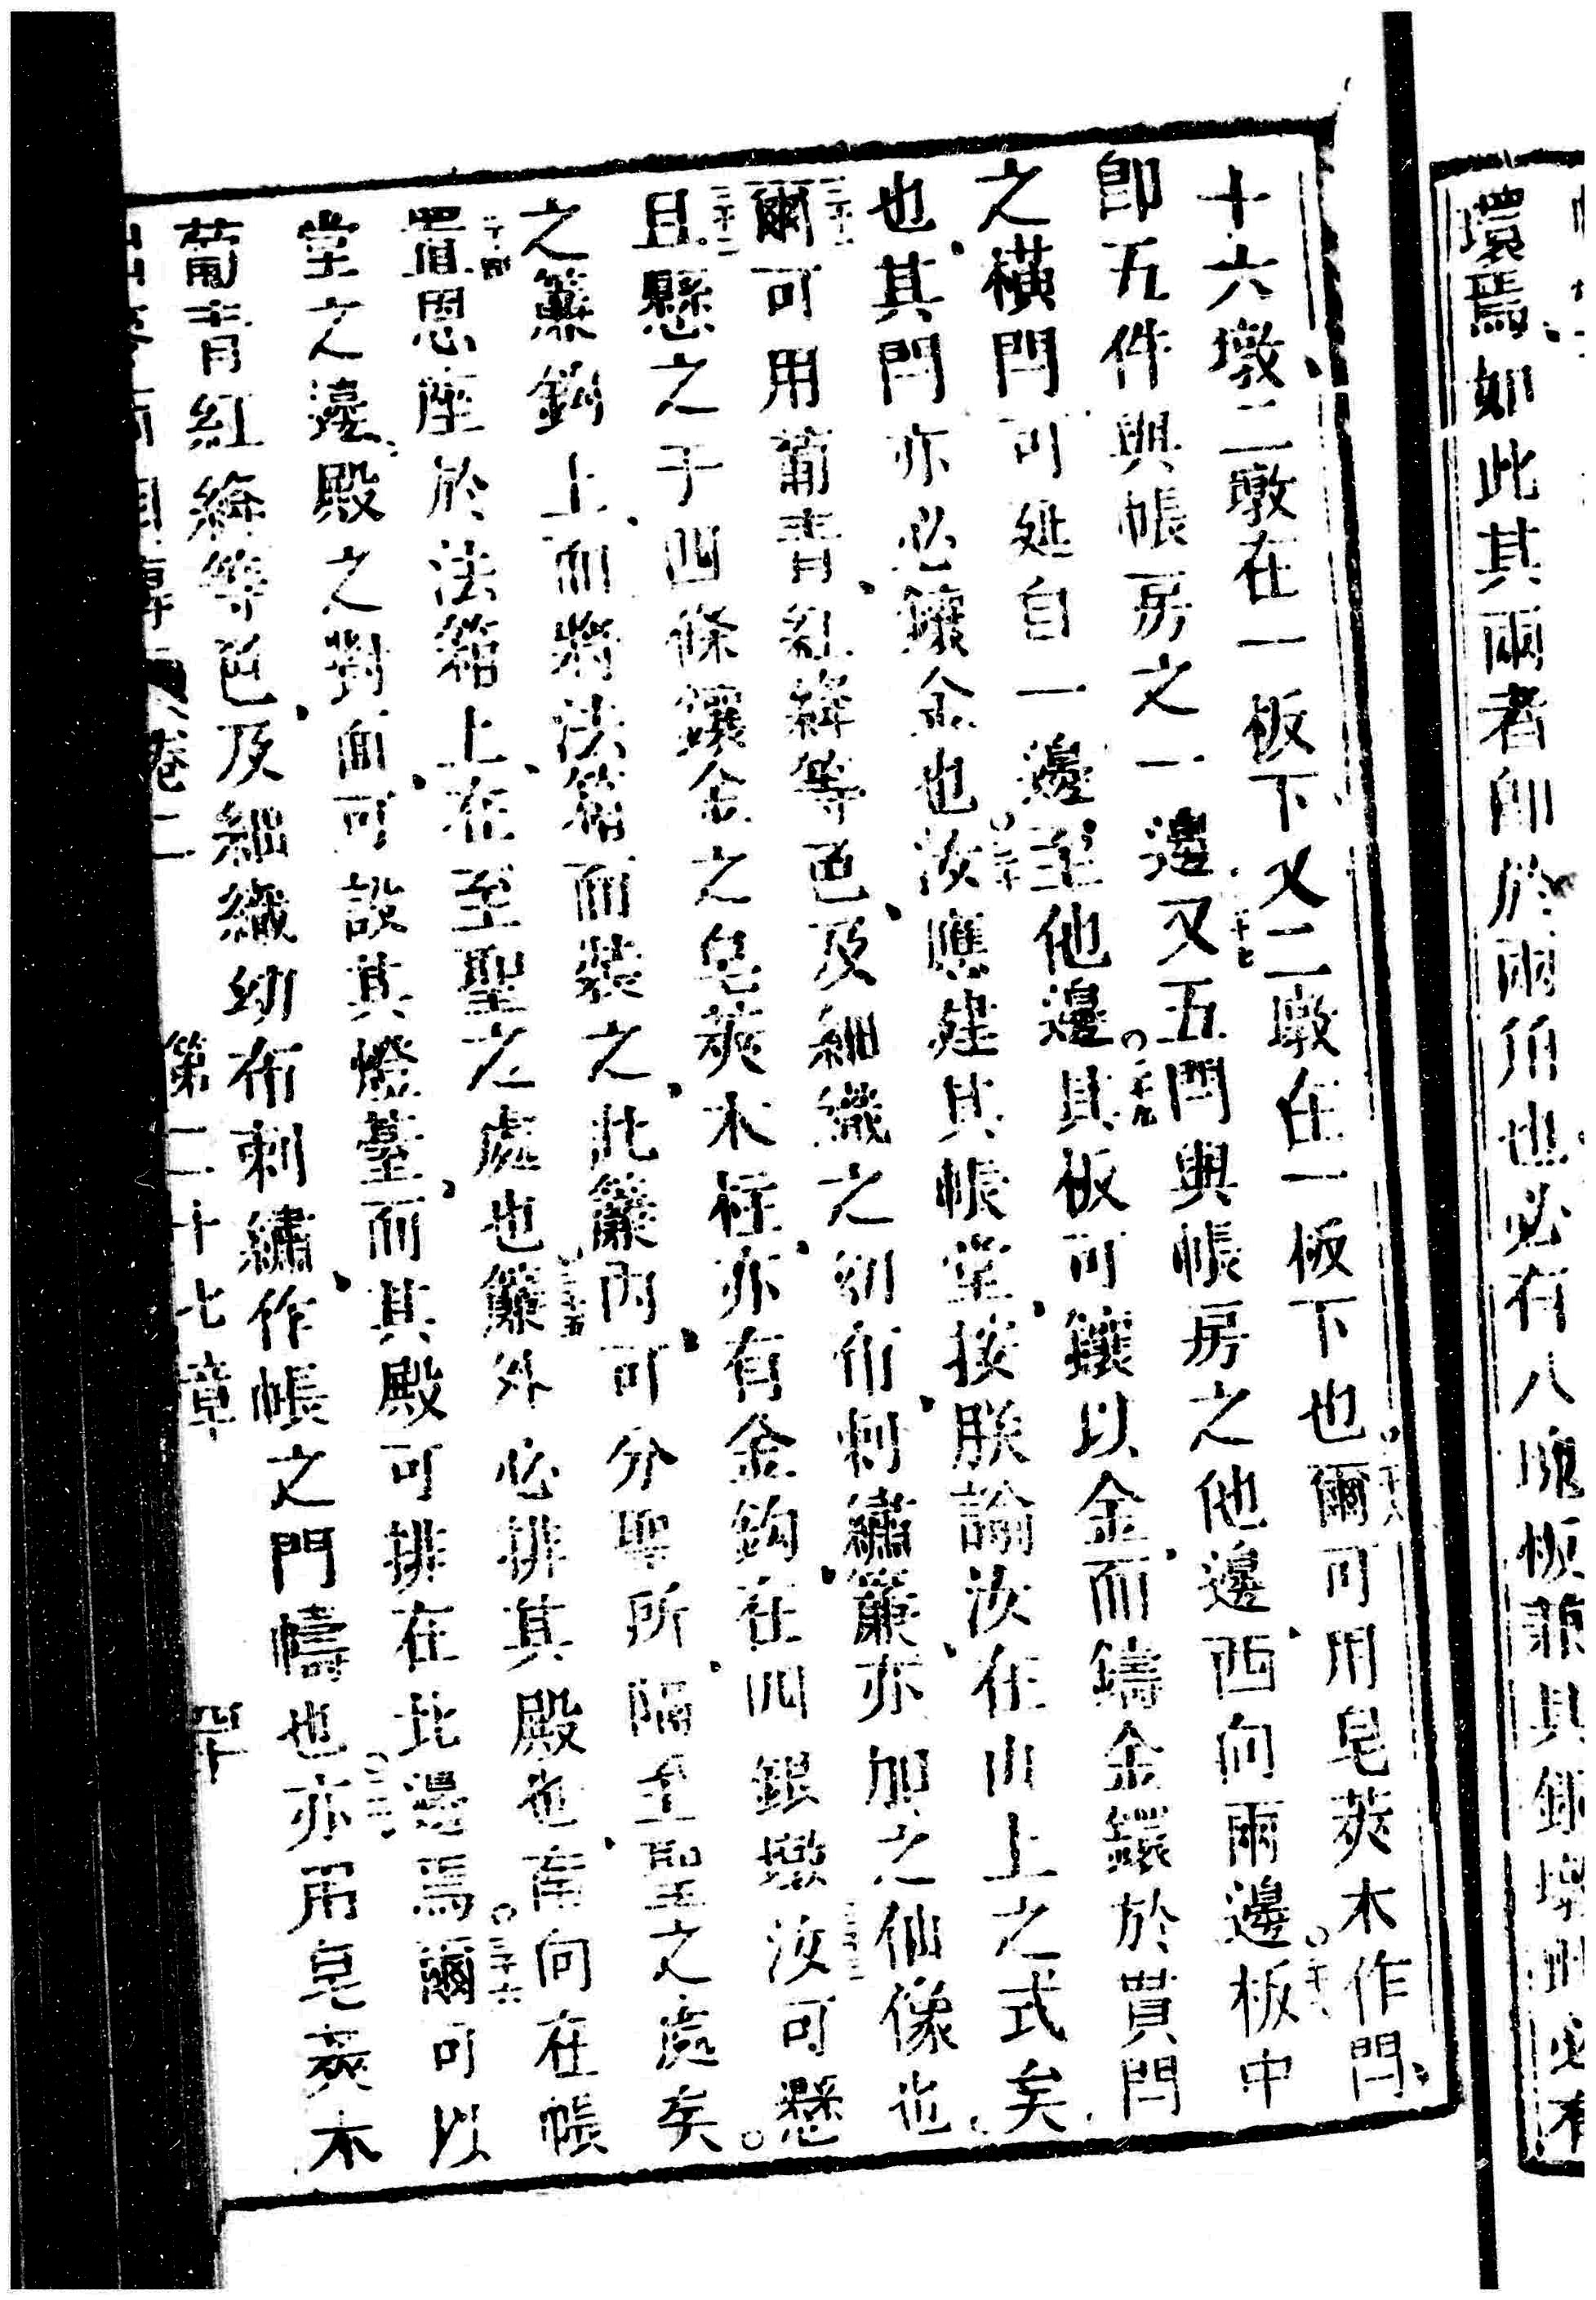 環焉如此其兩者即於兩角也必有八塊板兼其銀墩
十六墩二墩在一板下又二墩在一板下也〇二十六爾可用皂莢木作閂
即五件與帳房之一邊二十七又五閂與帳房之他邊西向兩邊〇二十八板中
之橫閂可延自一邊至他邊〇二十九其板可鑲以金而鑄金鐶於貫閂
也其閂亦必鑲金也〇三十汝應建其帳堂按朕諭汝在山上之式矣
三十一爾可用葡青紅絳等色及細織之幼布刺繡簾亦加之仙像也
三十二且懸之于四條鑲金之皂莢木柱亦有金鈎在四銀墩三十三汝可懸
之簾鈎上而將法箱而裝之此簾內可分聖所隔至聖之處矣〇
三十四置恩座於法箱上在至聖之處也三十五簾外必排其殿也南向在帳
堂之邊殿之對面可設其燈臺而其殿可排在北邊焉〇三十六爾可以
葡青紅絳等色及細織幼布刺繡作帳之門幬也〇三十七亦用皂莢木
卷二 第二十七章